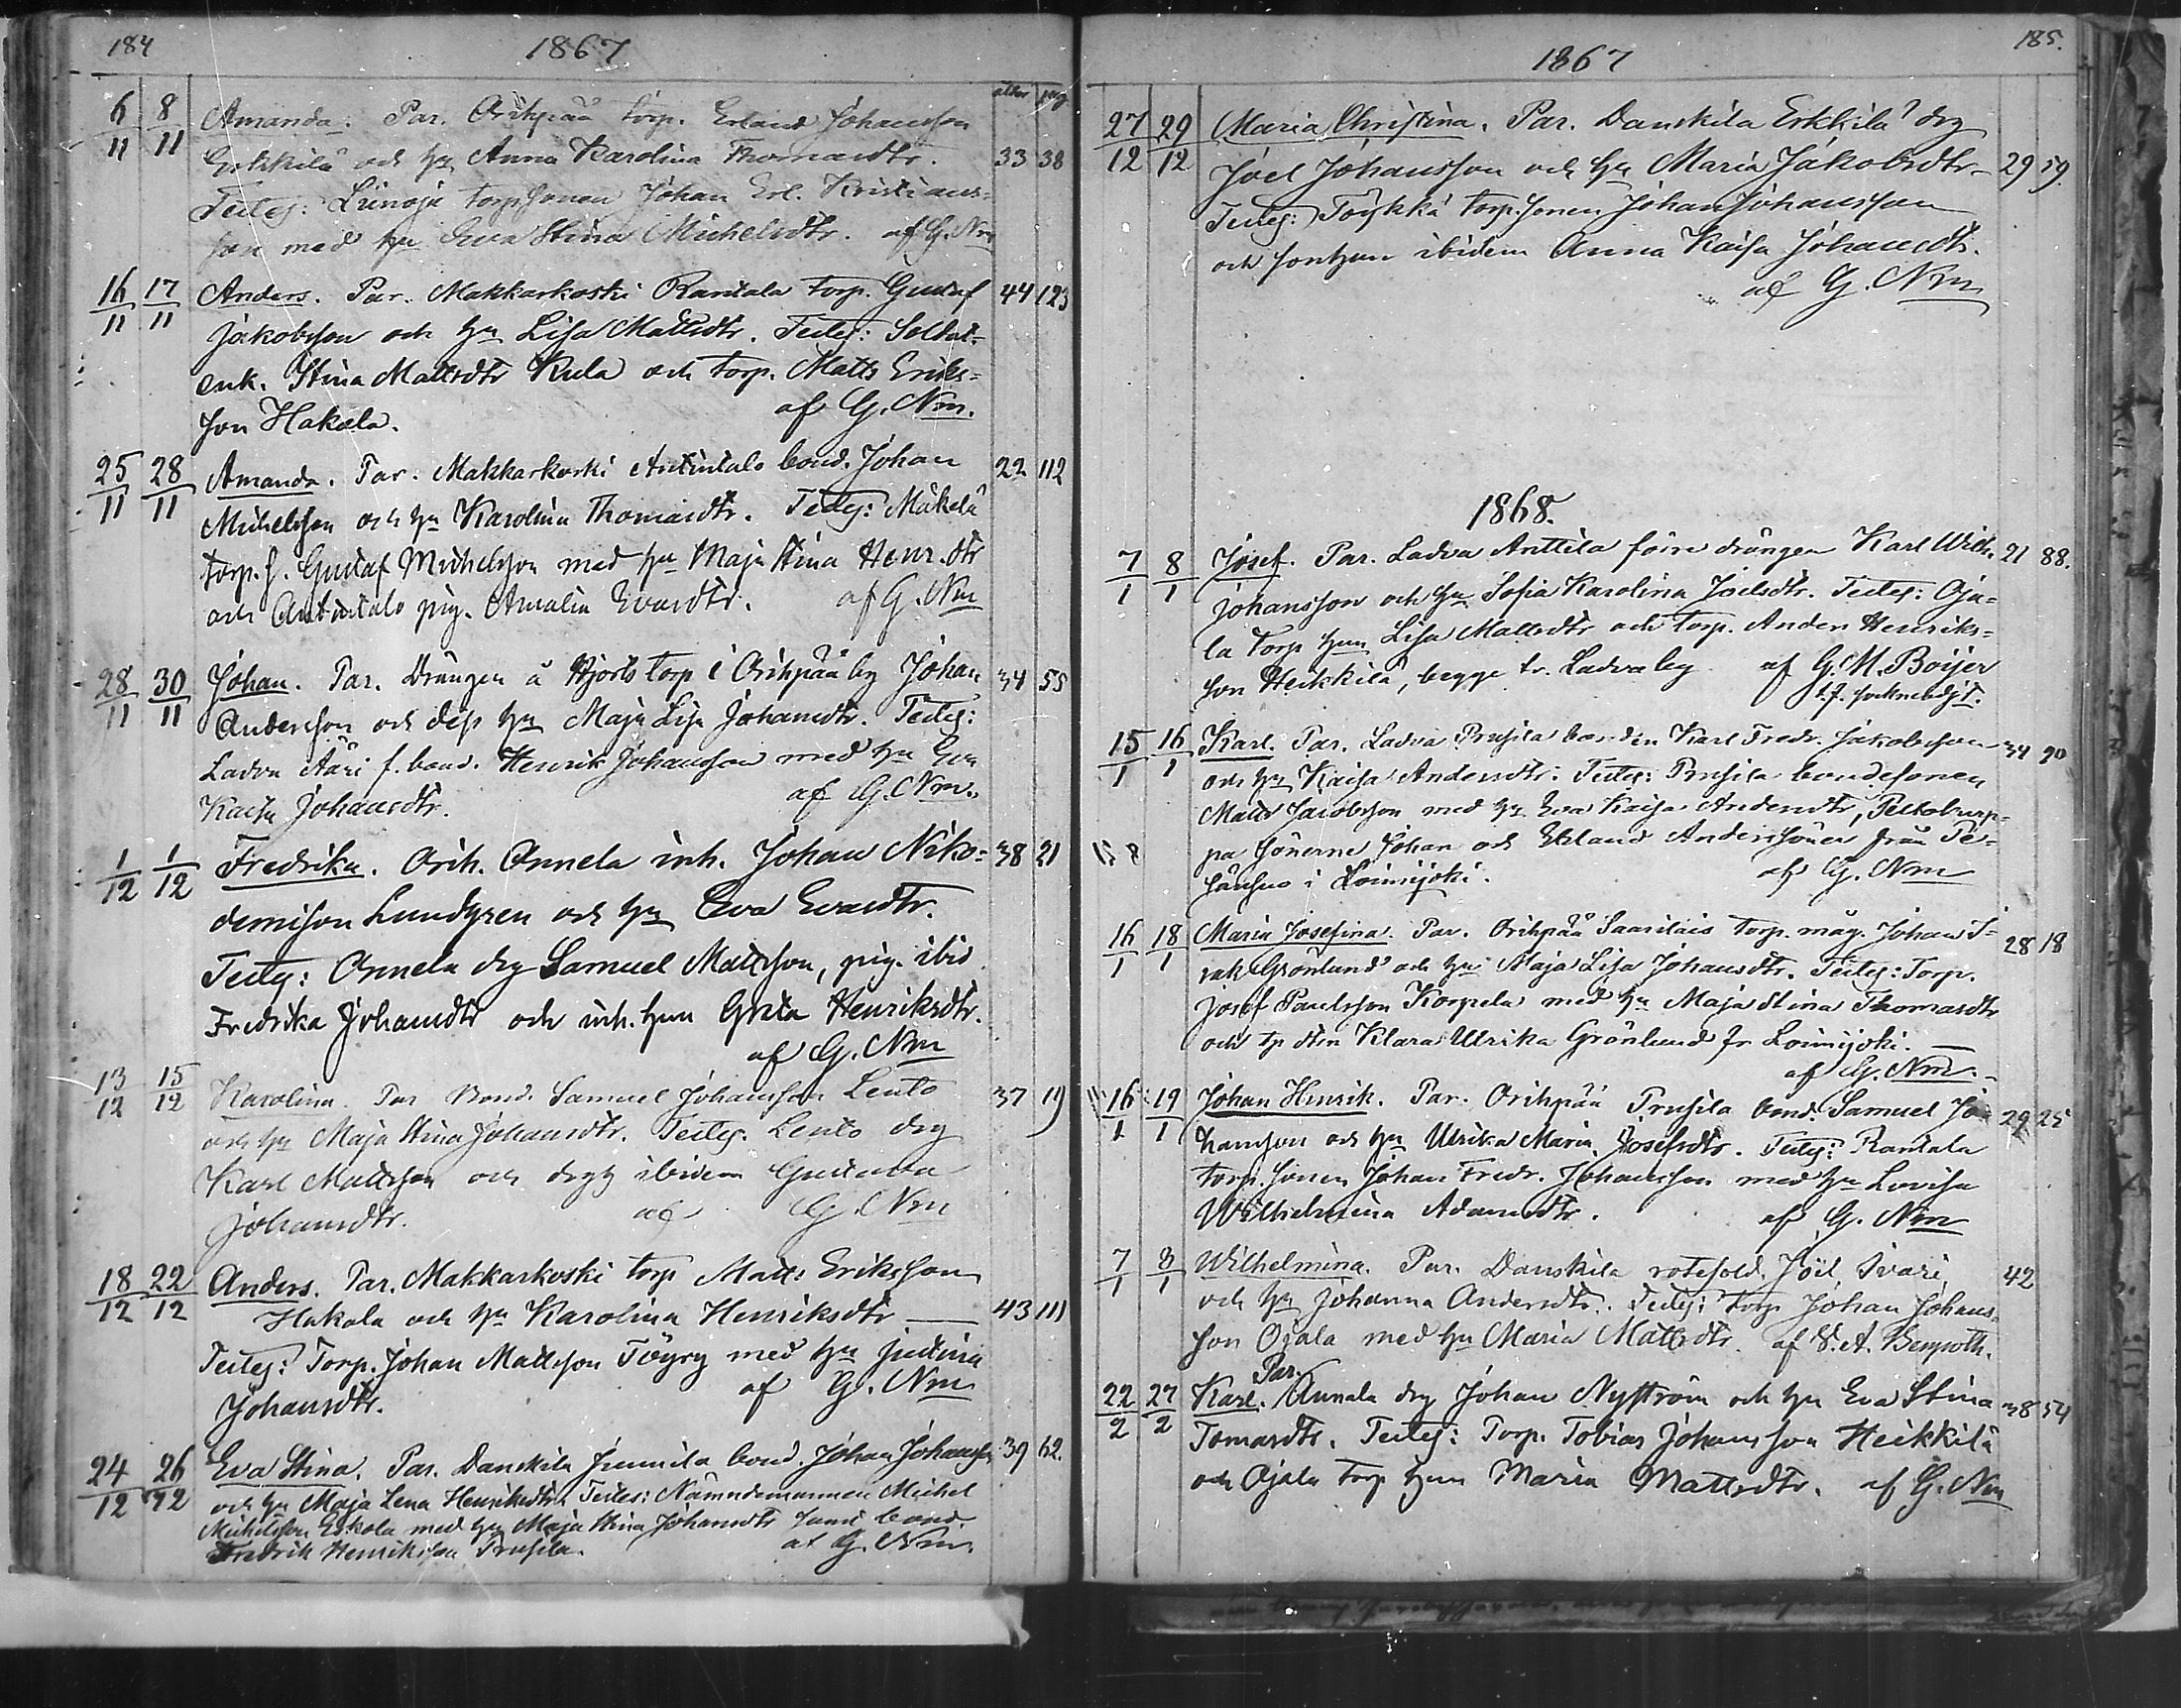 184
1867
ålder pag
6/11 8/11 Amanda. Par. Orihpää torp. Erland Johansson
Erkkilä och hu Anna Karolina Thomasdtr. 33 38
Testes: torpsonen Johan Erl. Kristians=
son med hu Eva Stina Michelsdtr. af G. Nm
16/11 17/11 Anders. Par. Makkarkoski Rantala torp. Gustaf 44 123
Jakobsson och hu Lisa Mattsdtr. Testes: Soldat-
enk. Stina Mattsdtr Kula och torp. Matts Eriks=
son Hakala. af G. Nm.
25/11 28/11 Amanda. Par. Makkarkoski Anttintalo bond. Johan 22 112
Michelsson och hu Karolina Thomasdtr. Testes: Mäkelä
torp. s. Gustaf Michelsson med hu Maja Stina Henr. dtr
och Anttintalo pig. Amalia Evasdtr. af G. Nm
28/11 30/11 Johan. Par. Drängen å Hjorts torp i Orihpää by Johan 34 55
Andersson och dess hu Maja Lisa Johansdtr. Testes:
Ladva Ääri f. bond. Henrik Johansson med hu Eva
Kaisa Johansdtr. af G. Nm.
1/12 1/12 Fredrika. Orih. Annela inh. Johan Niko= 38 21
demisson Lundgren och hu Eva Evasdtr.
Testes: Annela dreg Samuel Mattsson, pig. ibid
Fredrika Johansdtr och inh. hun Greta Henriksdtr.
af G. Nm
13/12 15/12 Karolina. Par Bond. Samuel Johansson Lento 37 119
och hu Maja Stina Johansdtr. Testes. Lento drg
Karl Mattsson och ibidem Gustava
Johansdtr. af G. Nm
18/12 22/12 Anders. Par. Makkarkoski torp Matts Eriksson
Hakala och hu Karolina Henriksdtr — 43 111
Testes: Torp. Johan Mattsson Töyry med hu Justina
Johansdtr. af G. Nm
24/12 26/12 Eva Stina. Par. Danskila Junnila bond. Johan Johansson 39 62.
och hu Maja Lena Henriksdtr. Testes: Nämndemannen Michel
Michelsson Eskola med hu Maja Stina Johansdtr samt bond.
Fredrik Henriksson Prusila. af G. Nm.
1867
185.
27/12 29/12 Maria Christina. Par. Danskila Erkkilä drg
Joel Johansson och hu Maria Jakobsdtr. 29 59.
Testes: Töykkä torp. sonen Johan Johansson
och sonhun ibidem Anna Kaisa Johansdtr.
af G. Nm
1868.
7/1 8/1 Josef. Par. Ladva Anttila förre drängen Karl Wilh. 21 88.
Johansson och hu Sofia Karolina Joelsdtr. Testes: Oja=
la torp hun Lisa Mattsdtr och torp. Anders Henriks=
son Heikkilä, begge fr. Ladva by af G. M. Boijer
t.f. sockneadjt.
15/1 16/1 Karl. Par. Ladva Prusila bonden Karl Fredr. Jakobsson 34 90
och hu Kaisa Andersdtr: Testes: Prusila bondesonen
Matts Jacobsson med hu Eva Kaisa Andersdtr,
pa sönerne Johan och Erland Anderssöner från
i Loimijoki. af G. Nm
16/1 18/1 Maria Josefina. Par. Orihpää Saarilais torp. måg. Johan I= 28 18
sak Grönlund och hu Maja Lisa Johansdtr. Testes: Torp.
Josef Paulsson Korpela med hu Maja Stina Thomasdtr
och Klara Ulrika Grönlund fr Loimijoki. —
af G. Nm.
16/1 19/1 Johan Henrik. Par. Orihpää Prusila bond. Samuel Jo 29 25
hansson och hu Ulrika Maria Josefsdtr. Testes: Rantala
torp. sonen Johan Fredr. Johansson med hu Lovisa
Wilhelmina Adamsdtr. af G. Nm
7/1 8/1 Wilhelmina. Par. Danskila rotesold. Joel Ivari 42
och hu Johanna Andersdtr. Testes: torp Johan Johans
son Ojala med hu Maria Mattsdtr. af
Par.
22/2 27/2 Karl. Annala drg Johan Nyström och hu Eva Stina 38 54
Tomasdtr. Testes: Torp. Tobias Johansson Heikkilä
och Ojala torp hun Maria Mattsdtr. af G. Nm